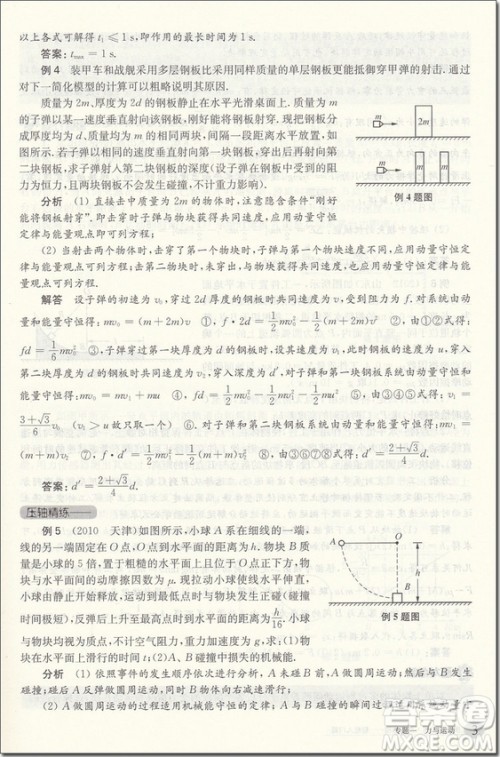 以上各式可解得 t₁⩽1 s，即作用的最长时间为 1 s.
答案：t_max = 1 s.
例 4 装甲车和战舰采用多层钢板比采用同样质量的单层钢板更能抵御穿甲弹的射击. 通过
对下一简化模型的计算可以粗略说明其原因.
质量为 2m、厚度为 2d 的钢板静止在水平光滑桌面上. 质量为 m
的子弹以某一速度垂直射向该钢板，刚好能将钢板射穿. 现把钢板分
成厚度均为 d、质量均为 m 的相同两块，间隔一段距离水平放置，如
图所示. 若子弹以相同的速度垂直射向第一块钢板，穿出后再射向第
二块钢板，求子弹射入第二块钢板的深度(设子弹在钢板中受到的阻
力为恒力，且两块钢板不会发生碰撞，不计重力影响).
m
2m
m
m
m
例 4 题图
分析 (1) 直接击中质量为 2m 的物块时，注意隐含条件“刚好
能将钢板射穿”. 即击穿时子弹与物块获得共同速度，应用动量守恒
定律与能量观点即可列方程；
(2) 当射击两个物体时，击穿了第一个物块时，子弹与第一个物块速度不同，应用动量守恒定
律与能量观点可列方程；击第二物块时，未穿出，与物块获得共同速度，应用动量守恒定律与能
量观点即可列方程.
解答 设子弹的初速为 v₀，穿过 2d 厚度的钢板时共同速度为 v，受到阻力为 f. 对系统由动
量和能量守恒得：mv₀ = (m + 2m)v ①，f · 2d = 1/2 mv₀² − 1/2 (m + 2m)v² ②，由①②得：
fd = 1/6 mv₀² ③，子弹穿过第一块厚度为 d 的钢板时，设其速度为 v₁，此时钢板的速度为 u，穿入
第二块厚度为 d 的钢板时共同速度为 v₂，穿入深度为 d′，对子弹和第一块钢板系统由动量和能
量守恒得：mv₀ = mv₁ + mu ④，f · d = 1/2 mv₀² − 1/2 mv₁² − 1/2 mu² ⑤，由③④⑤式得：v₁ =
(3+√3)/6 v₀ (v₁ > u 故只取一个) ⑥. 对子弹和第二块钢板系统由动量和能量守恒得：mv₁ =
(m + m)v₂ ⑦，f · d′ = 1/2 mv₁² − 1/2 (m + m)v₂² ⑧，由③⑥⑦⑧式得：d′ = (2+√3)/4 d.
答案：d′ = (2+√3)/4 d.
压轴精练
例 5 (2010 天津)如图所示，小球 A 系在细线的一端，
线的另一端固定在 O 点，O 点到水平面的距离为 h. 物块 B 质
量是小球的 5 倍，置于粗糙的水平面上且位于 O 点正下方，物
块与水平面间的动摩擦因数为 μ. 现拉动小球使线水平伸直，
小球由静止开始释放，运动到最低点时与物块发生正碰(碰撞
时间极短)，反弹后上升至最高点时到水平面的距离为 h/16. 小球
与物块均视为质点，不计空气阻力，重力加速度为 g，求：(1)物
块在水平面上滑行的时间 t；(2)A、B 碰撞中损失的机械能.
A
O
h
B
例 5 题图
分析 (1) 依照事件的发生顺序依次进行分析，A 未碰 B 前，A 做圆周运动；然后与 B 发生
碰撞；碰撞后 A 反弹做圆周运动，B 在地面向右减速滑行；
专题一 力与运动 3